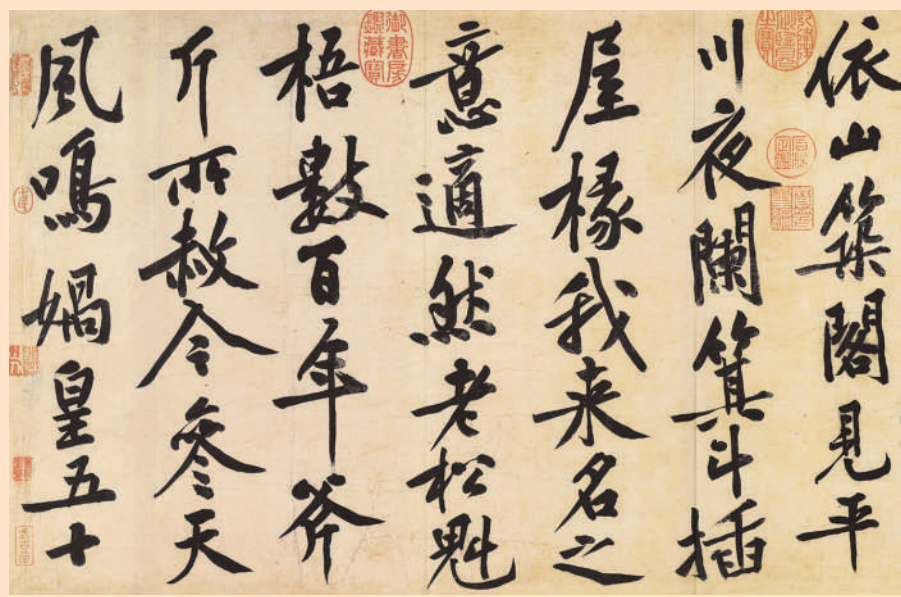 依山築閣見平
川夜闌箕斗插
屋椽我来名之
意適然老松魁
梧數百年斧
斤所赦今參天
風鳴媧皇五十
御書房
鑑藏寶